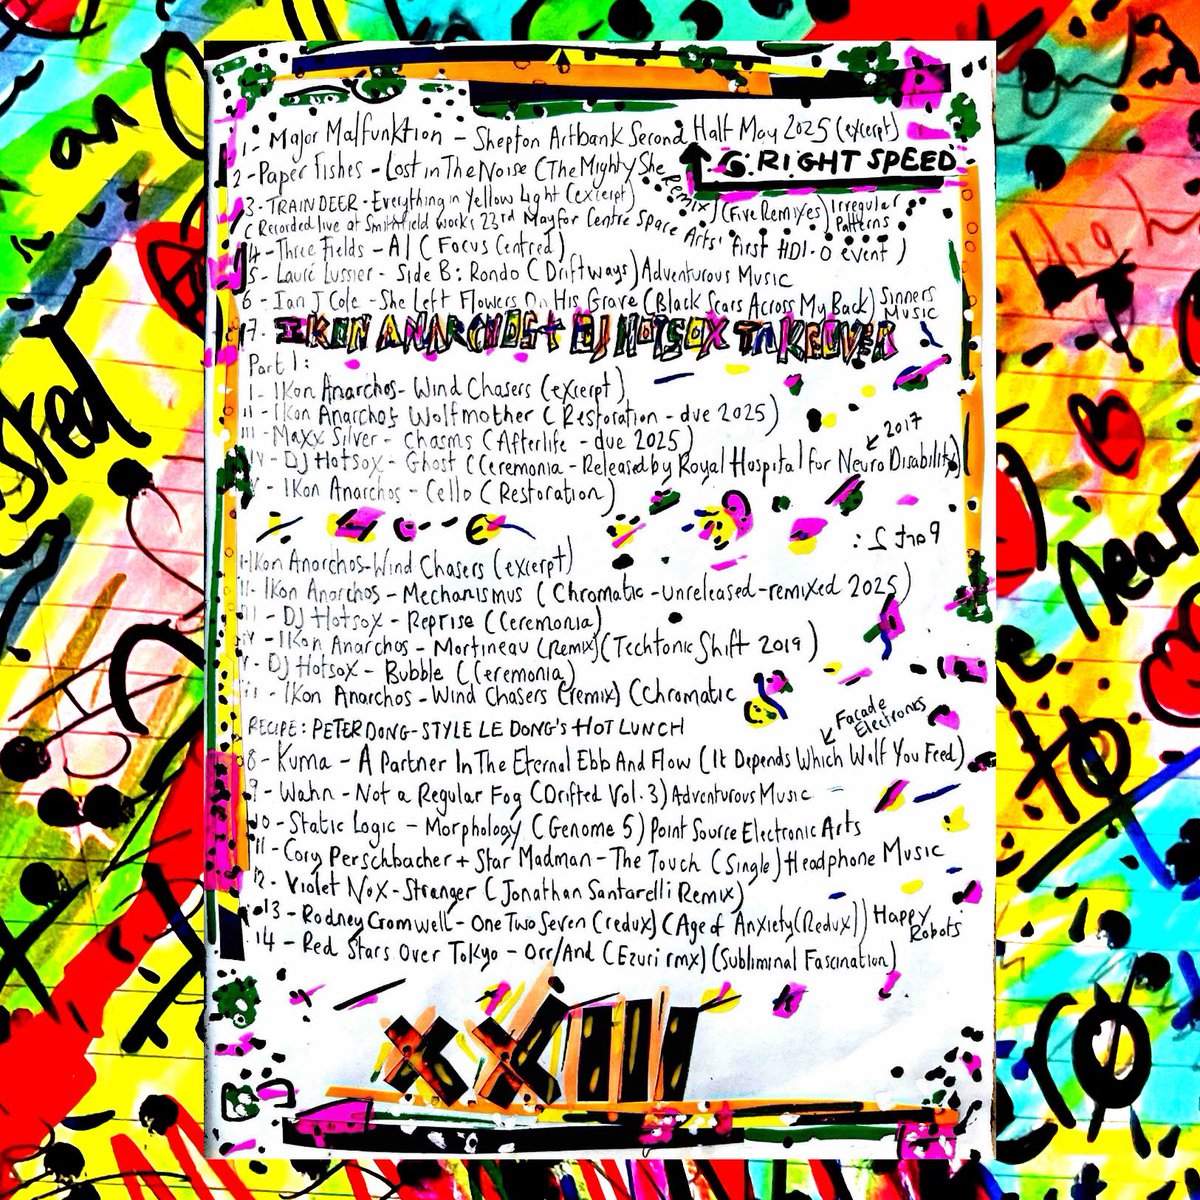 1- Major Malfunktion - Shepton Artbank Second Half May 2025 (excerpt)
G: RIGHT SPEED
2 - Paper Fishes - Lost in The Noise (The Mighty She Remix) (Five Remixes) Irregular Patterns
3- TRAINDEER - Everything in Yellow Light (excerpt)
(Recorded live at Smithfield Works 23rd May for Centre Space Arts' first HD1.0 event)
4 - Three Fields - A1 (Focus Centred)
5 - Lauré Lussier - Side B: Rondo (Driftways) Adventurous Music
6 - Ian J Cole - She Left Flowers On His Grave (Black Scars Across My Back) Sinners Music
7. IKON ANARCHOS + DJ HOTSOX TAKEOVER
Part 1:
I - IKon Anarchos - Wind Chasers (excerpt)
II - IKon Anarchos Wolfmother (Restoration - due 2025)
III - Maxx Silver - Chasms (Afterlife - due 2025)
2017
IV - DJ Hotsox - Ghost (Ceremonia - Released by Royal Hospital for Neuro Disability)
V - IKon Anarchos - Cello (Restoration)
Part 2:
I - IKon Anarchos - Wind Chasers (excerpt)
II - IKon Anarchos - Mechanismus (Chromatic - unreleased - remixed 2025)
III - DJ Hotsox - Reprise (Ceremonia)
IV - IKon Anarchos - Mortineau (Remix) (Techtonic Shift 2019)
V - DJ Hotsox - Bubble (Ceremonia)
- IKon Anarchos - Wind Chasers (remix) (Chromatic
RECIPE: PETER DONG-STYLE LE DONG'S HOT LUNCH
Facade Electronics
8 - Kuma - A Partner In The Eternal Ebb And Flow (It Depends Which Wolf You Feed)
9 - Wahn - Not a Regular Fog (Drifted Vol. 3) Adventurous Music
10 - Static Logic - Morphology (Genome 5) Point Source Electronic Arts
11 - Cory Perschbacher + Star Madman - The Touch (Single) Headphone Music
12 - Violet Nox - Stranger (Jonathan Santarelli Remix)
13 - Rodney Cromwell - One Two Seven (redux) (Age of Anxiety (Redux)) Happy Robots
14 - Red Stars Over Tokyo - Orr/And (Ezuri rmx) (Subliminal Fascination)
XXIII